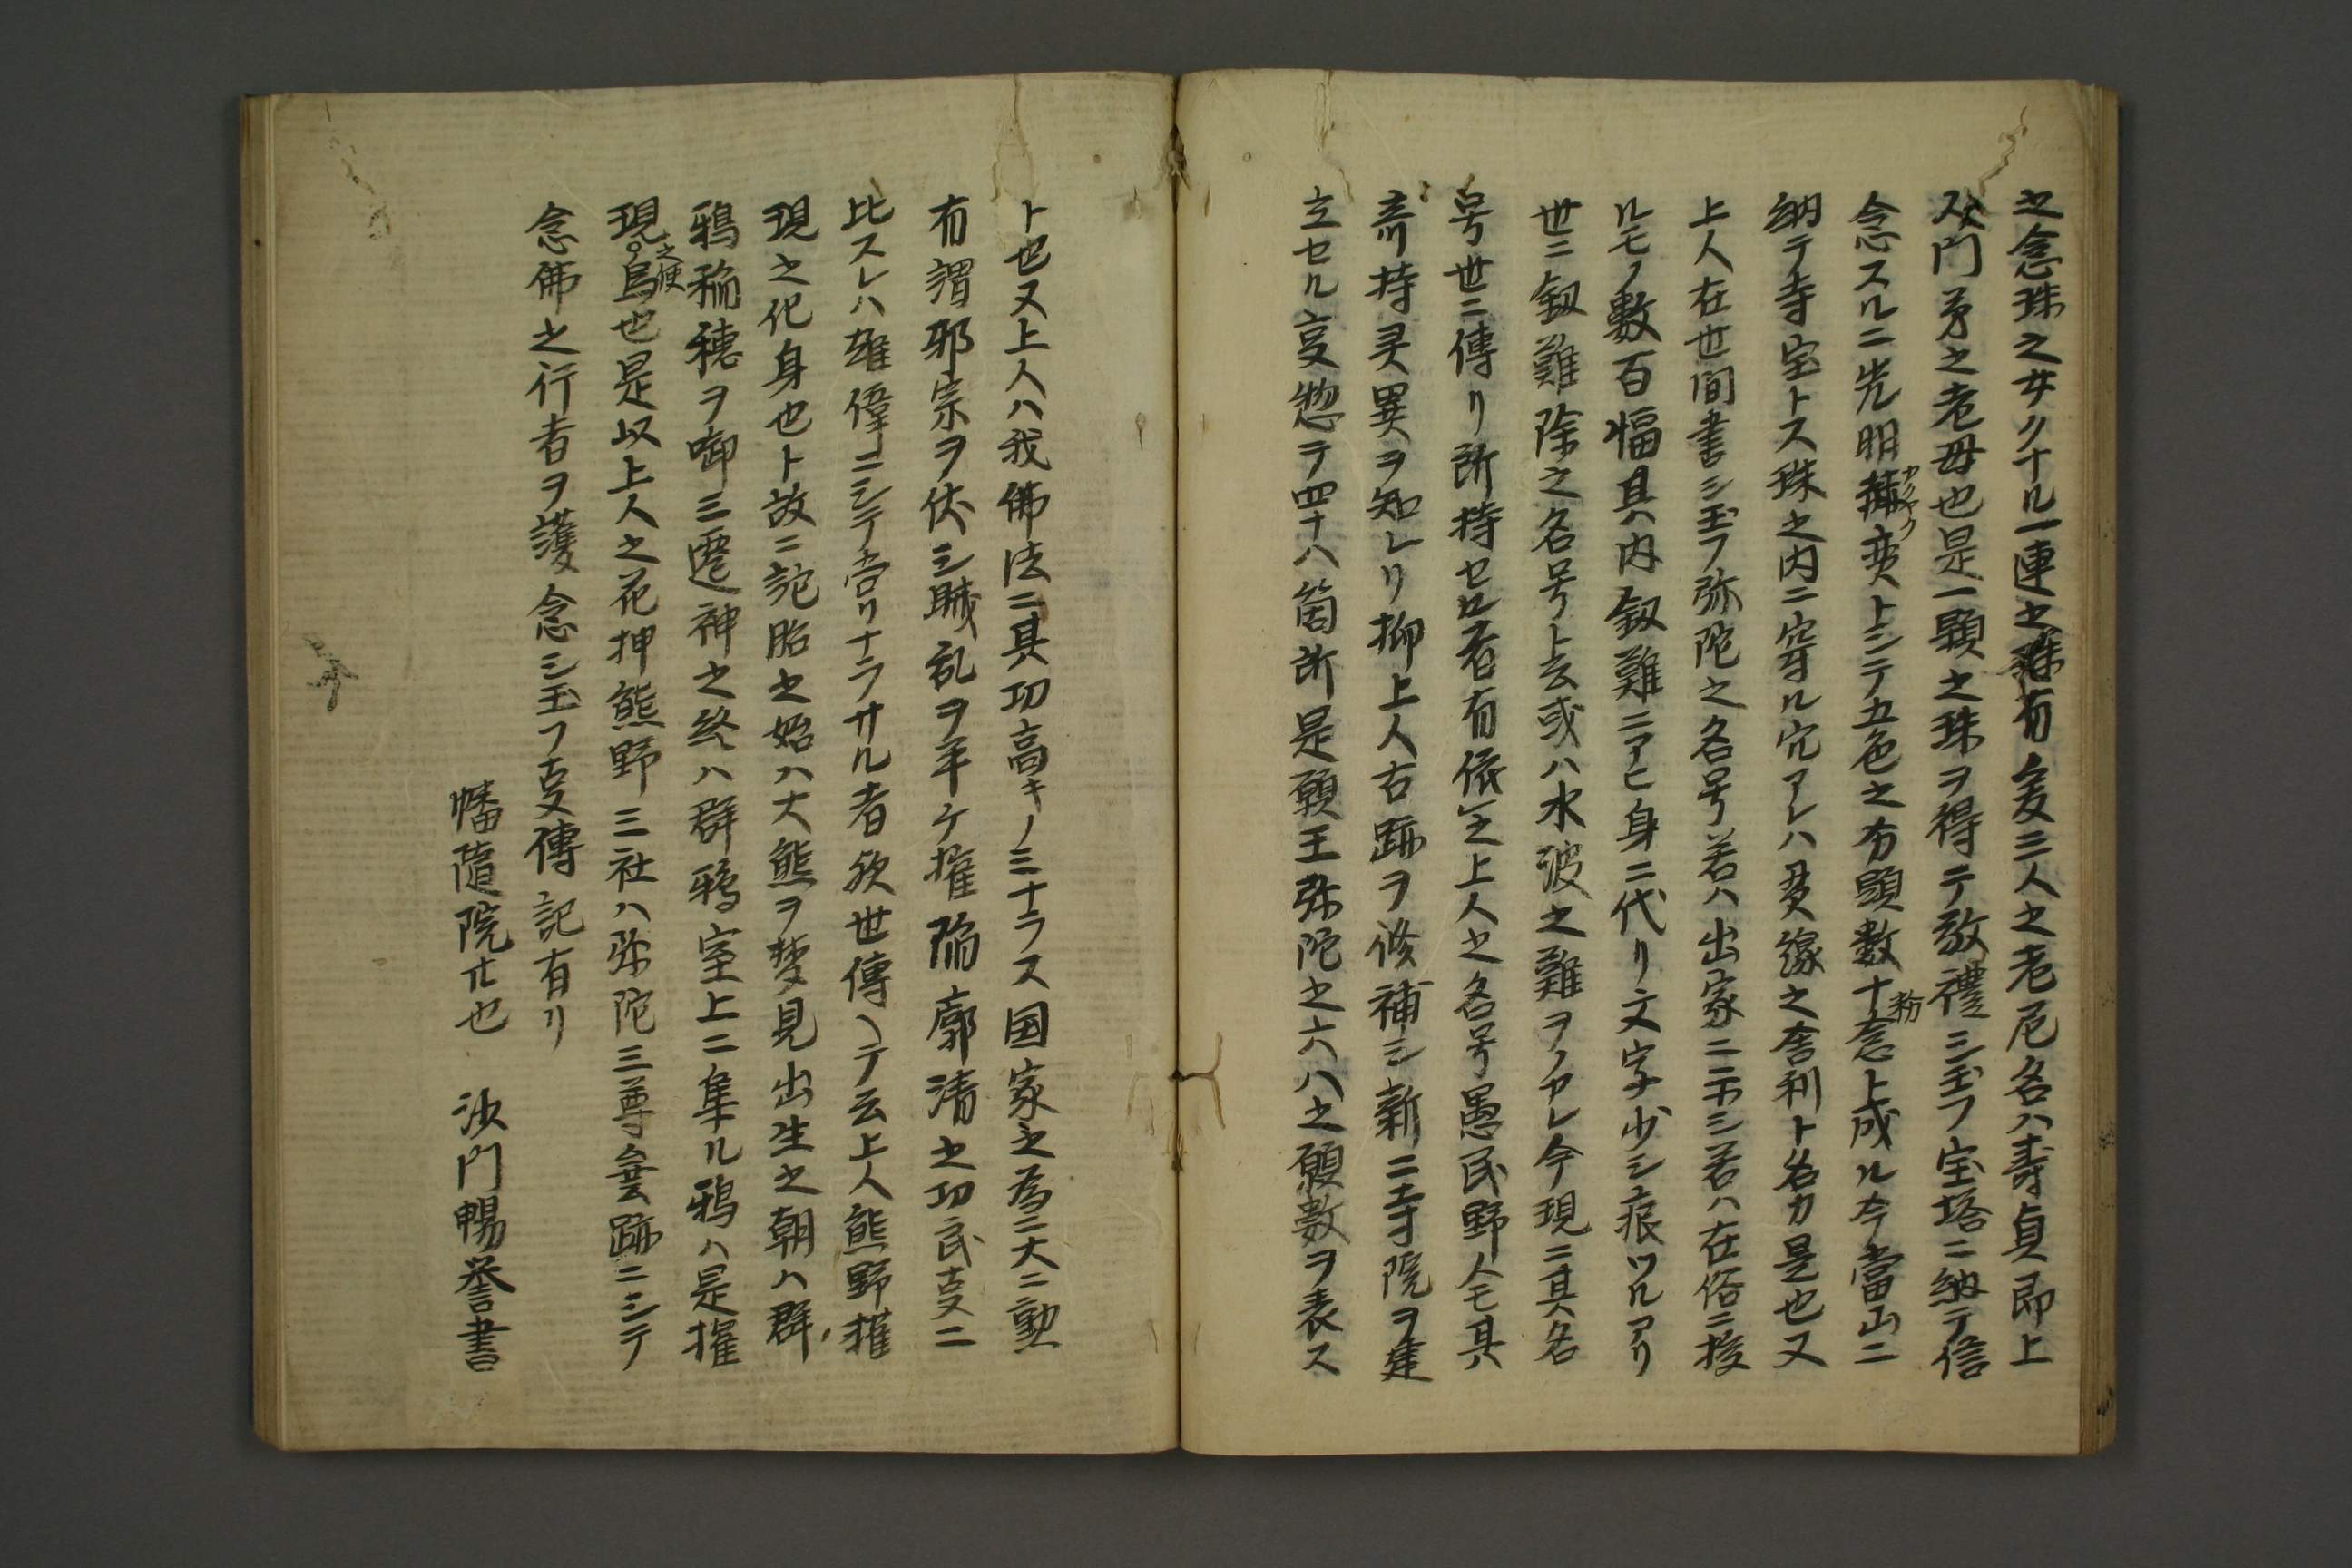 之念珠之母ノ十ル一連之珠有爰三人之老尼名ハ壽貞即上
人門弟之老母也是一顆之珠ヲ得テ敬禮シ玉フ宝塔ニ納テ信
念スルニ光明赫奕カクヤクトシテ五色之分顆数十粉念上成ル今當山ニ
納テ寺宝トス珠之内ニ穿ル穴アレハ貫縁之舎利ト名ツ是也又
上人在世间書シ玉フ弥陀之名号若ハ出家ニ示シ若ハ在俗ニ授
ルモノ數百幅其内釼難ニアヒ身ニ代リ文字少シ痕ツルアリ
世ニ釼難除之名号ト云或ハ水波之難ヲノカレ今現ニ其名
号世ニ傳リ所持セル者有依之上人之名号愚民野人モ其
所持灵異ヲ知レリ抑上人古跡ヲ修補シ新ニ寺院ヲ建
立セル㕝惣テ四十八箇所是願王弥陀之六八之願數ヲ表ス
ト也又上人ハ我佛法ニ其功高キノミナラス国家之為ニ大ニ勲
有謂邪宗ヲ伏シ賊乱ヲ平ケ摧陥廓清之功武㕝ニ
比スレハ雄偉ニシテ常リナラサル者欤世傳ヘテ云上人熊野権
現之化身也ト故ニ詑胎之始ハ大熊ヲ夢見出生之朝ハ群
鴉稲穂ヲ啣ミ遷神之終ハ群鴉室上ニ集ル鴉ハ是権
現之使烏也是以上人之花押熊野三社ハ弥陀三尊垂跡ニシテ
念佛之行者ヲ護念シ玉フ㕝傳記有リ
幡隨院廿也　沙門暢誉書